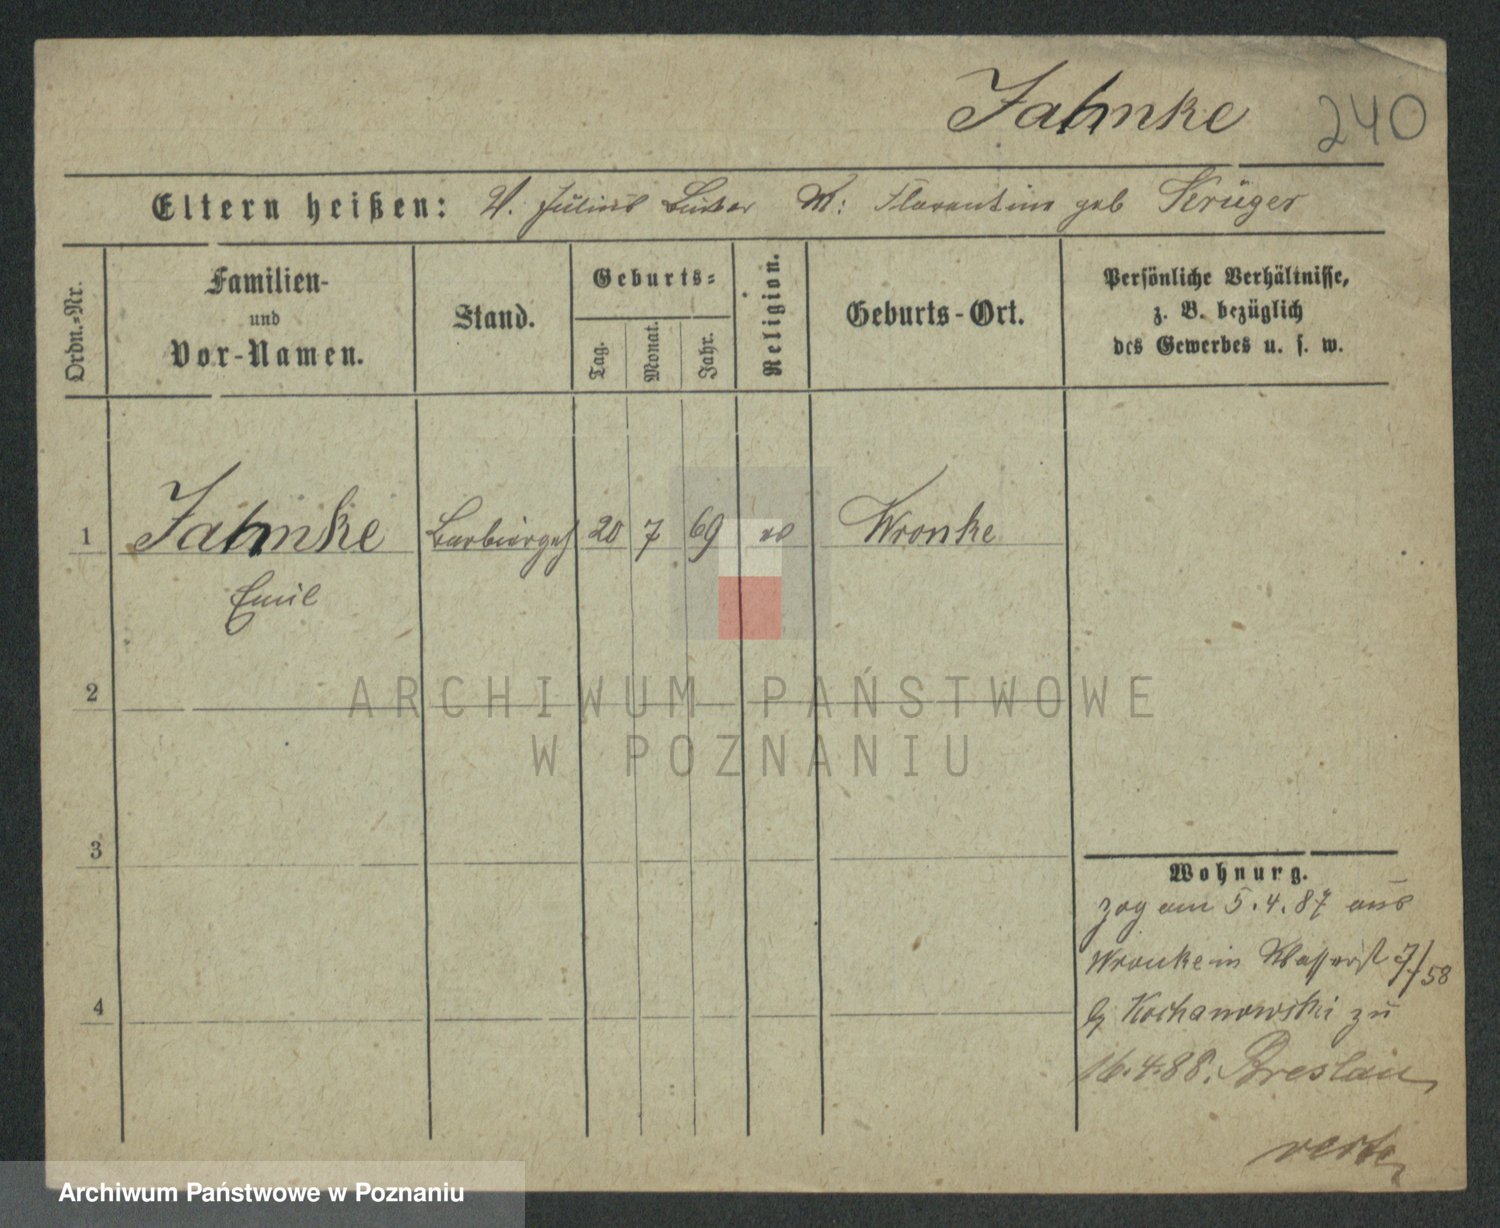 Jahnke 240
Eltern heißen: V. Julius M: Florentine geb Krüger
Ordn.-Nr.
Familien-
und
Vor-Namen.
Stand.
Geburts-
Tag.
Monat.
Jahr.
Religion.
Geburts-Ort.
Persönliche Verhältnisse,
z. B. bezüglich
des Gewerbes u. s. w.
1 Jahnke Barbiergeh 20 7 69 ev Wronke
Emil
2
ARCHIWUM PAŃSTWOWE
W POZNANIU
3
Wohnung.
zog am 5.4.87 aus
Wronke in Wasserst 7/58
4
b Kochanowski zu
16.4.88. Breslau
verte
Archiwum Państwowe w Poznaniu